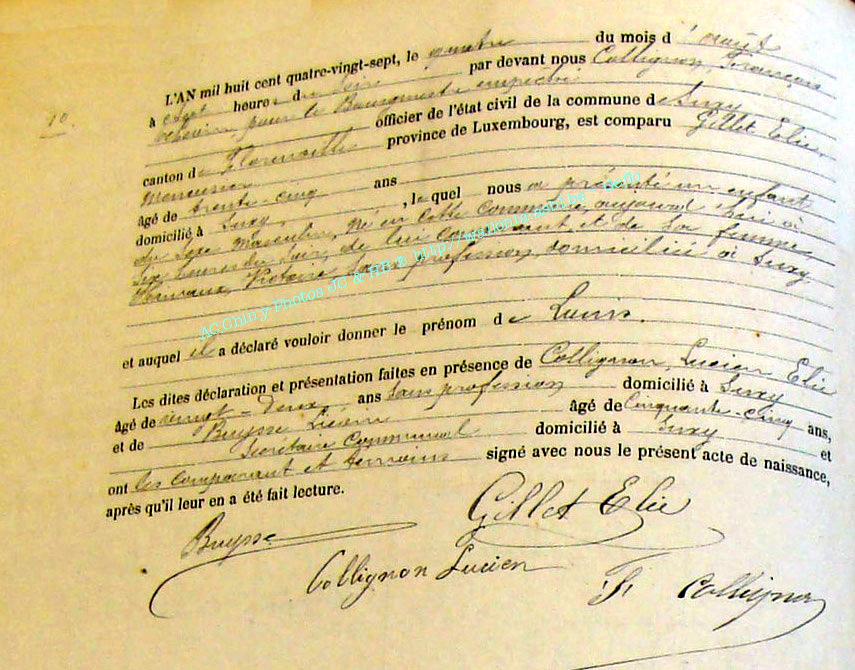 10.
L'AN mil huit cent quatre-vingt-sept, le quatre du mois d'août
à sept heures du soir par devant nous Collignon, François
échevin pour le Bourgmestre empêché
officier de l'état civil de la commune de Suxy
canton de Florenville province de Luxembourg, est comparu Gillet Elie,
menuisier
âgé de trente-cinq ans
domicilié à Suxy, lequel nous a présenté un enfant
du sexe masculin, né en cette commune, aujourd'hui à
six heures du soir, de lui comparant et de sa femme
Victoire sans profession, domiciliée à Suxy
et auquel il a déclaré vouloir donner le prénom de
Les dites déclaration et présentation faites en présence de Collignon, Lucien Elie
âgé de vingt-deux ans sans profession domicilié à Suxy
et de Buysse âgé de cinquante-cinq ans,
Secrétaire Communal domicilié à Suxy et
ont les comparant et témoins signé avec nous le présent acte de naissance,
après qu'il leur en a été fait lecture.
Gillet Elie
Buysse
Collignon Lucien
F. Collignon
AC Chiny Photos JC & RB